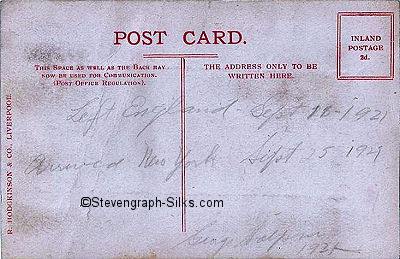 POST CARD.
INLAND
POSTAGE
2d.
THIS SPACE AS WELL AS THE BACK MAY
NOW BE USED FOR COMMUNICATION.
(POST OFFICE REGULATION).
THE ADDRESS ONLY TO BE
WRITTEN HERE.
Left England Sept 18-1921
Arrived New York Sept 25 1921
©Stevengraph-Silks.com
1921
R. HODGKINSON & CO., LIVERPOOL.